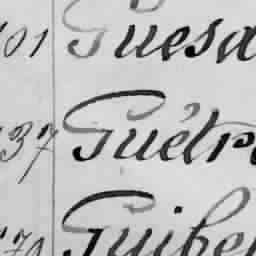 101 Guesd
137 Guétr
170 Guibe